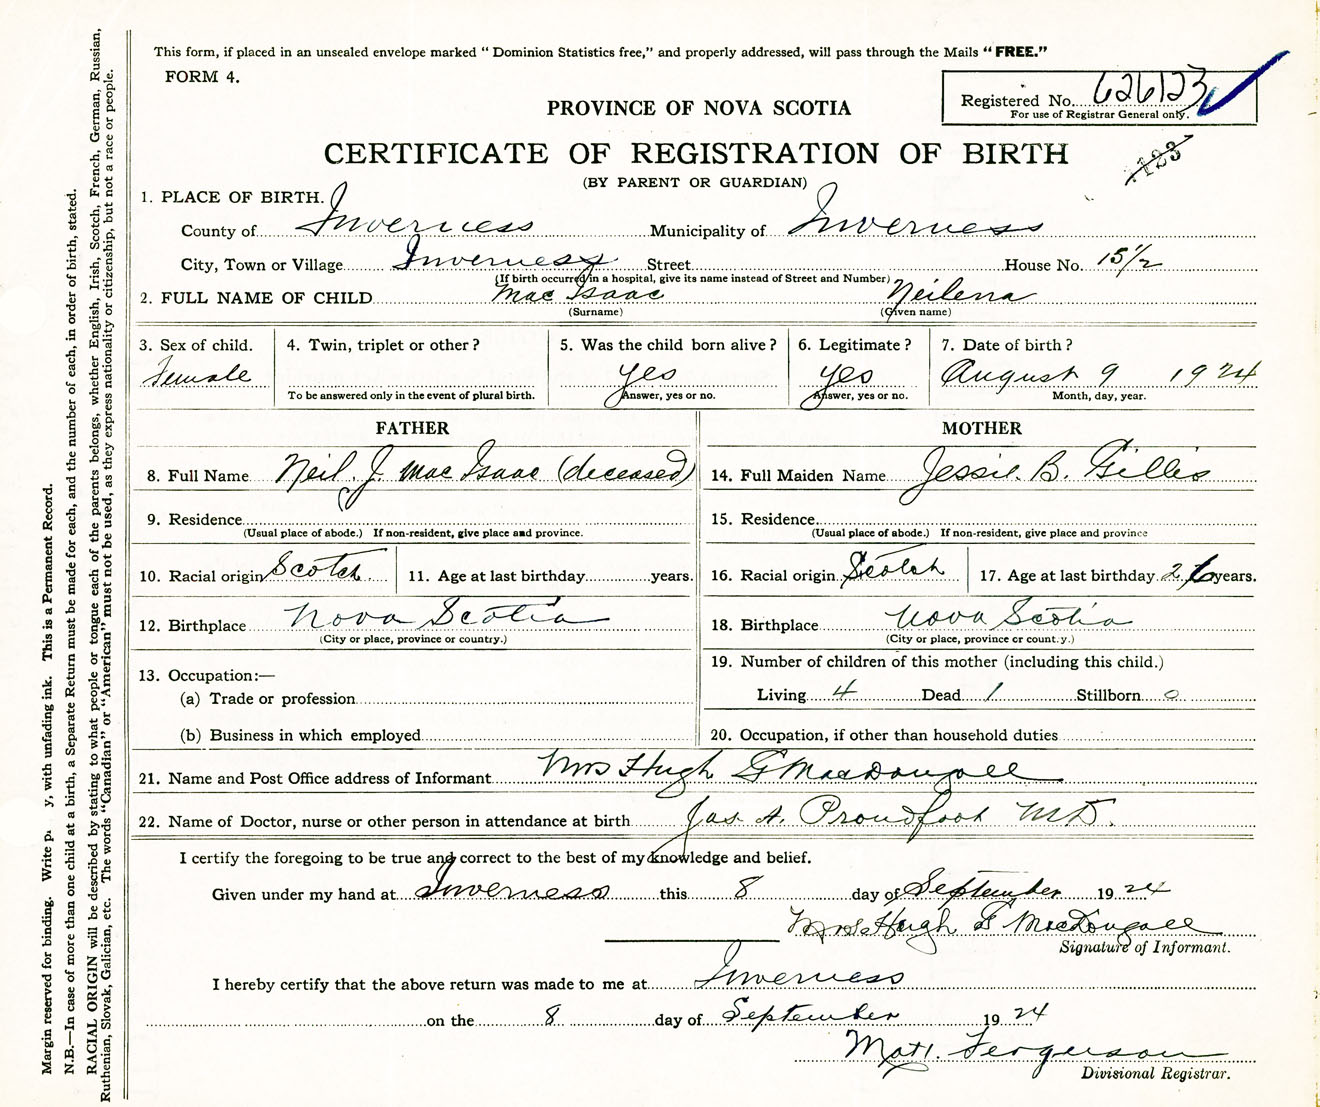 This form, if placed in an unsealed envelope marked “ Dominion Statistics free,” and properly addressed, will pass through the Mails “ FREE.”
FORM 4.
Registered No. 626123
For use of Registrar General only.
PROVINCE OF NOVA SCOTIA
CERTIFICATE OF REGISTRATION OF BIRTH
123
(BY PARENT OR GUARDIAN)
1. PLACE OF BIRTH.
County of Inverness Municipality of Inverness
City, Town or Village Inverness Street House No. 15½
(If birth occurred in a hospital, give its name instead of Street and Number)
2. FULL NAME OF CHILD Mac Isaac Neilena
(Surname) (Given name)
3. Sex of child. 4. Twin, triplet or other? 5. Was the child born alive? 6. Legitimate? 7. Date of birth?
Female yes yes August 9 1924
To be answered only in the event of plural birth. Answer, yes or no. Answer, yes or no. Month, day, year.
FATHER MOTHER
8. Full Name Neil. J. Mac Isaac (deceased) 14. Full Maiden Name Jessie. B. Gillis
9. Residence 15. Residence
(Usual place of abode.) If non-resident, give place and province. (Usual place of abode.) If non-resident, give place and province
10. Racial origin Scotch 11. Age at last birthday years. 16. Racial origin Scotch 17. Age at last birthday 26 years.
12. Birthplace Nova Scotia 18. Birthplace Nova Scotia
(City or place, province or country.) (City or place, province or count.y.)
13. Occupation:— 19. Number of children of this mother (including this child.)
(a) Trade or profession Living 4 Dead 1 Stillborn 0
(b) Business in which employed 20. Occupation, if other than household duties
21. Name and Post Office address of Informant Mrs Hugh G MacDougall
22. Name of Doctor, nurse or other person in attendance at birth Jas A. Proudfoot MD.
I certify the foregoing to be true and correct to the best of my knowledge and belief.
Given under my hand at Inverness this 8 day of September 1924
Mrs Hugh G MacDougall
Signature of Informant.
I hereby certify that the above return was made to me at Inverness
on the 8 day of September 1924
Matt. Fergerson
Divisional Registrar.
Margin reserved for binding. Write p. y, with unfading ink. This is a Permanent Record.
N.B.—In case of more than one child at a birth, a Separate Return must be made for each, and the number of each, in order of birth, stated.
RACIAL ORIGIN will be described by stating to what people or tongue each of the parents belongs, whether English, Irish, Scotch, French, German, Russian,
Ruthenian, Slovak, Galician, etc. The words “Canadian” or “American” must not be used, as they express nationality or citizenship, but not a race or people.